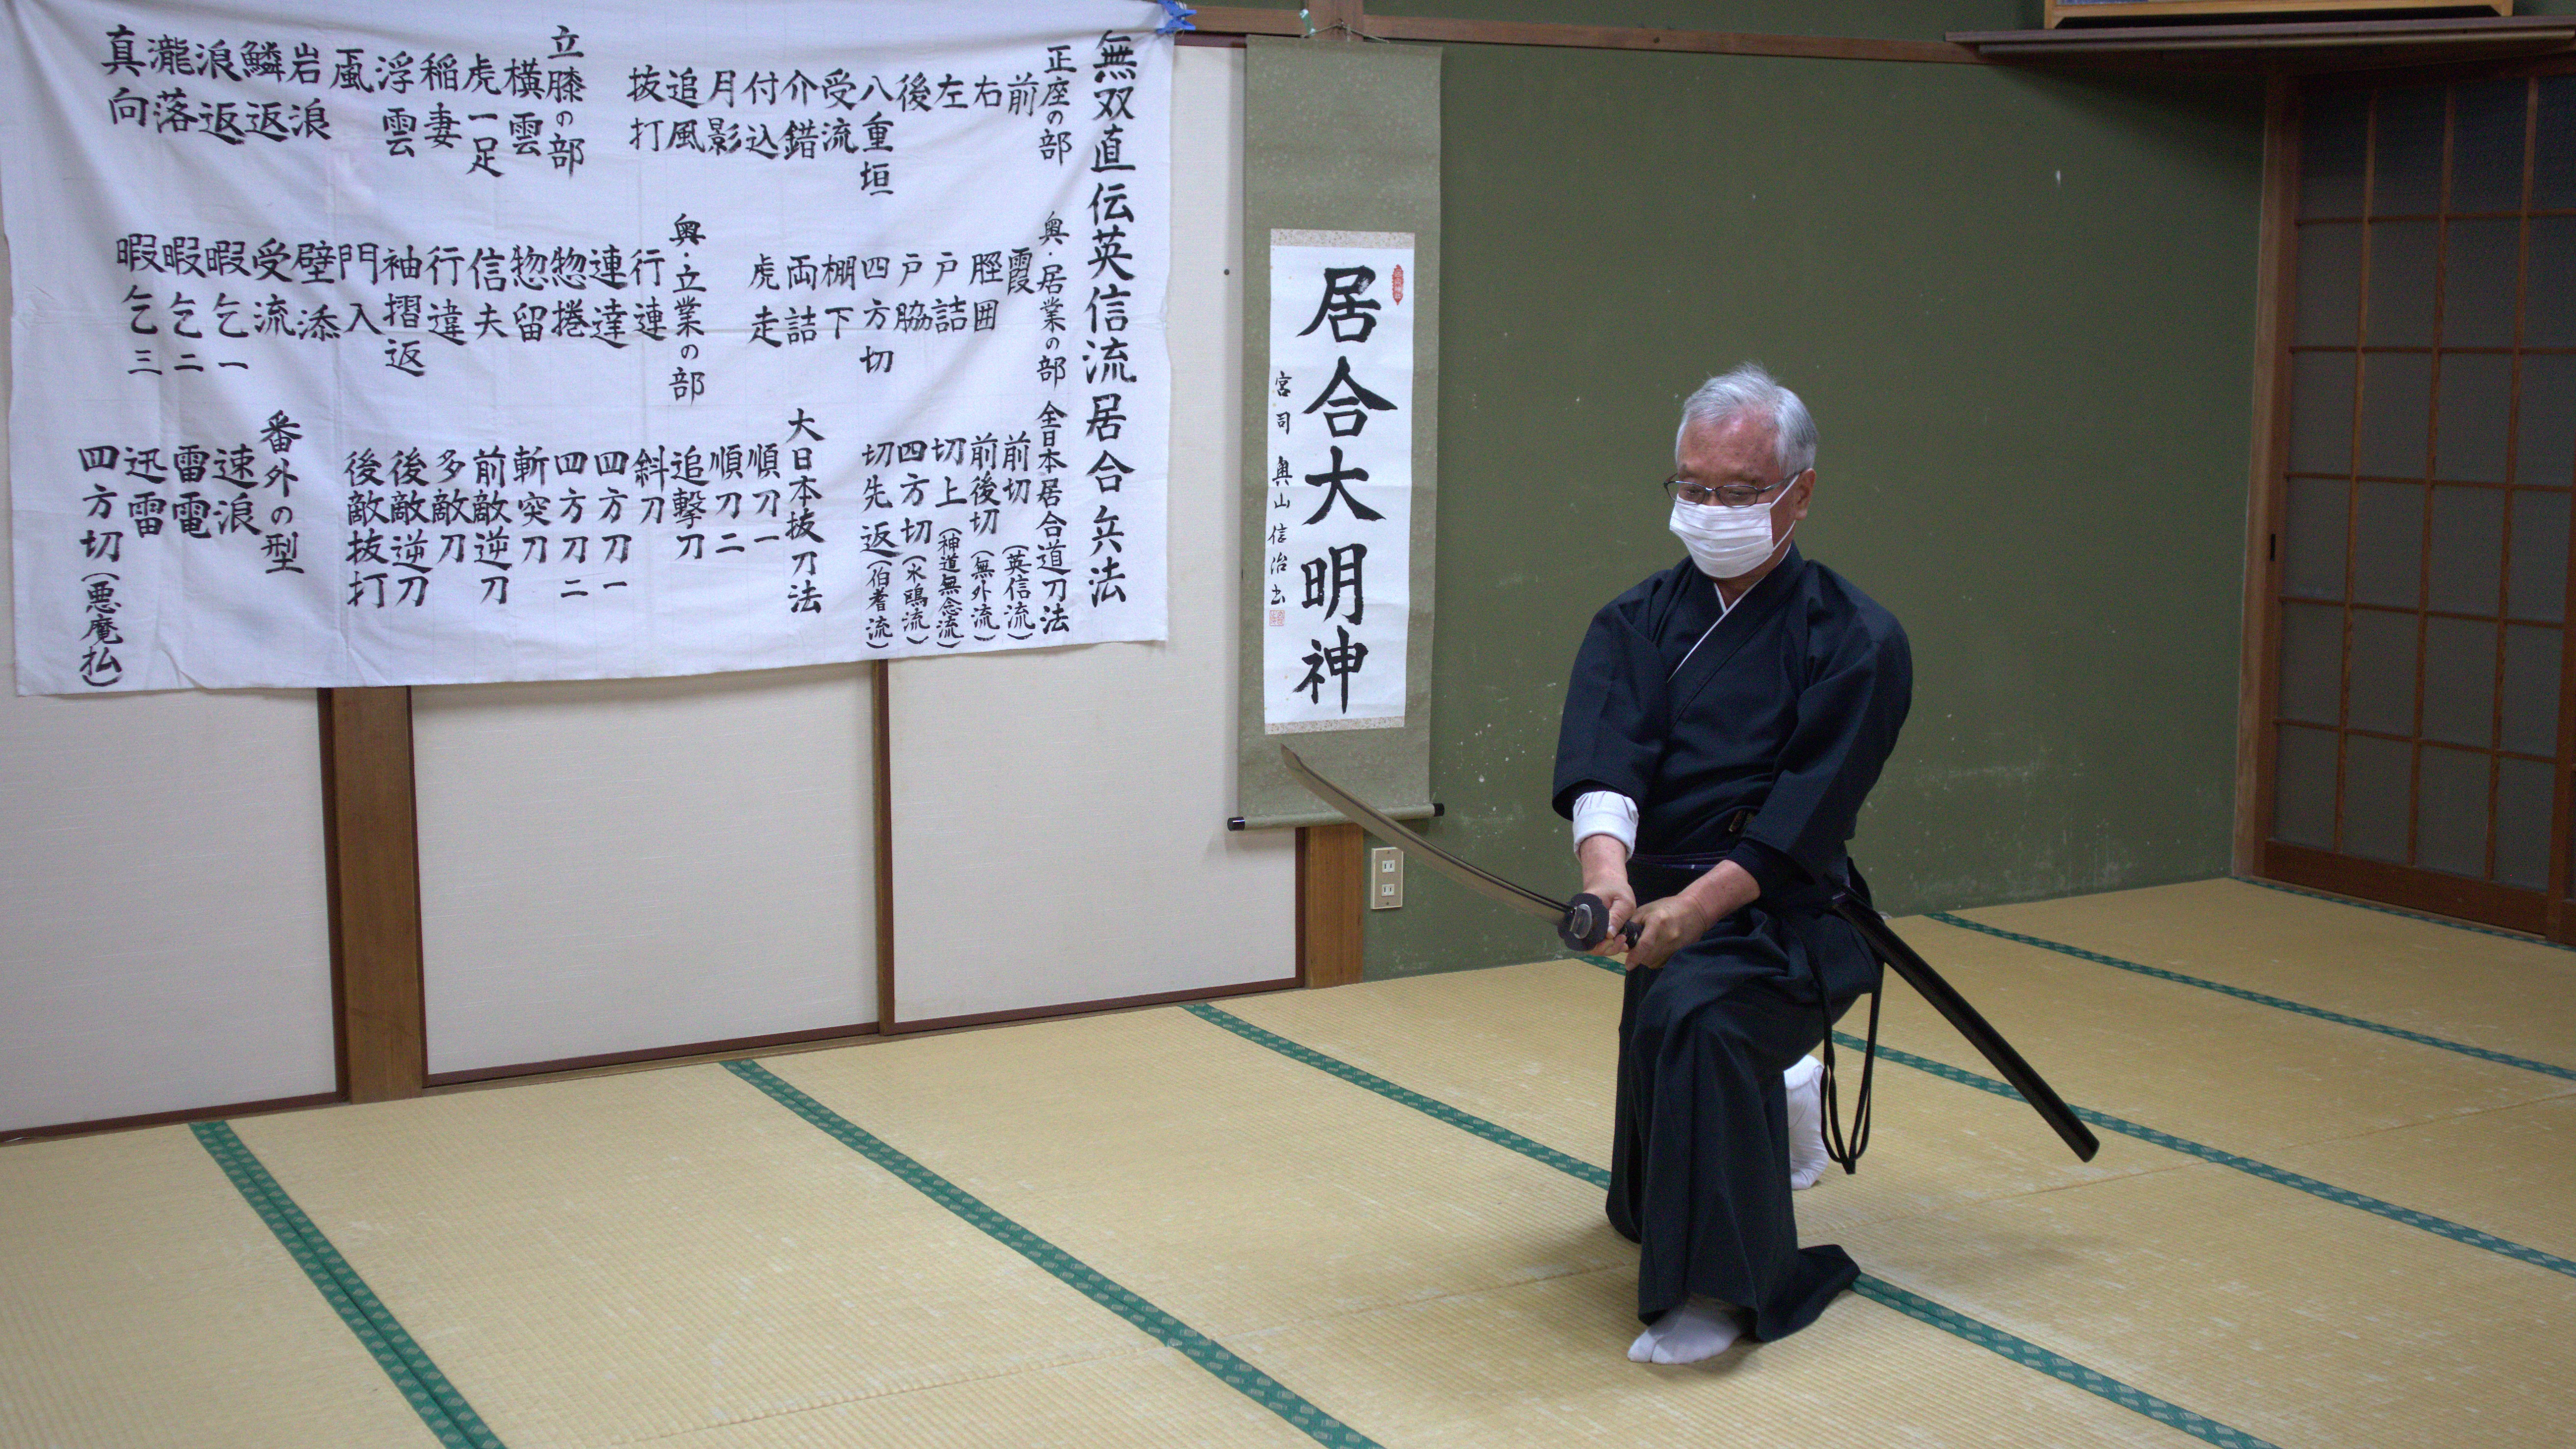 無双直伝英信流居合兵法
正座の部
前
右
左
後
八重垣
受流
介錯
付込
月影
追風
抜打
立膝の部
横雲
虎一足
稲妻
浮雲
颪
岩浪
鱗返
浪返
瀧落
真向
奥・居業の部
霞
脛囲
戸詰
戸脇
四方切
棚下
両詰
虎走
奥・立業の部
行連
連達
惣捲
惣留
信夫
行違
袖摺返
門入
壁添
受流
暇乞一
暇乞二
暇乞三
全日本居合道刀法
前切(英信流)
前後切(無外流)
切上(神道無念流)
四方切(水鴎流)
切先返(伯耆流)
大日本抜刀法
順刀一
順刀二
追撃刀
斜刀
四方刀一
四方刀二
斬突刀
前敵逆刀
多敵刀
後敵逆刀
後敵抜打
番外の型
速浪
雷電
迅雷
四方切(悪魔払)
居合大明神
宮司 奥山信治書